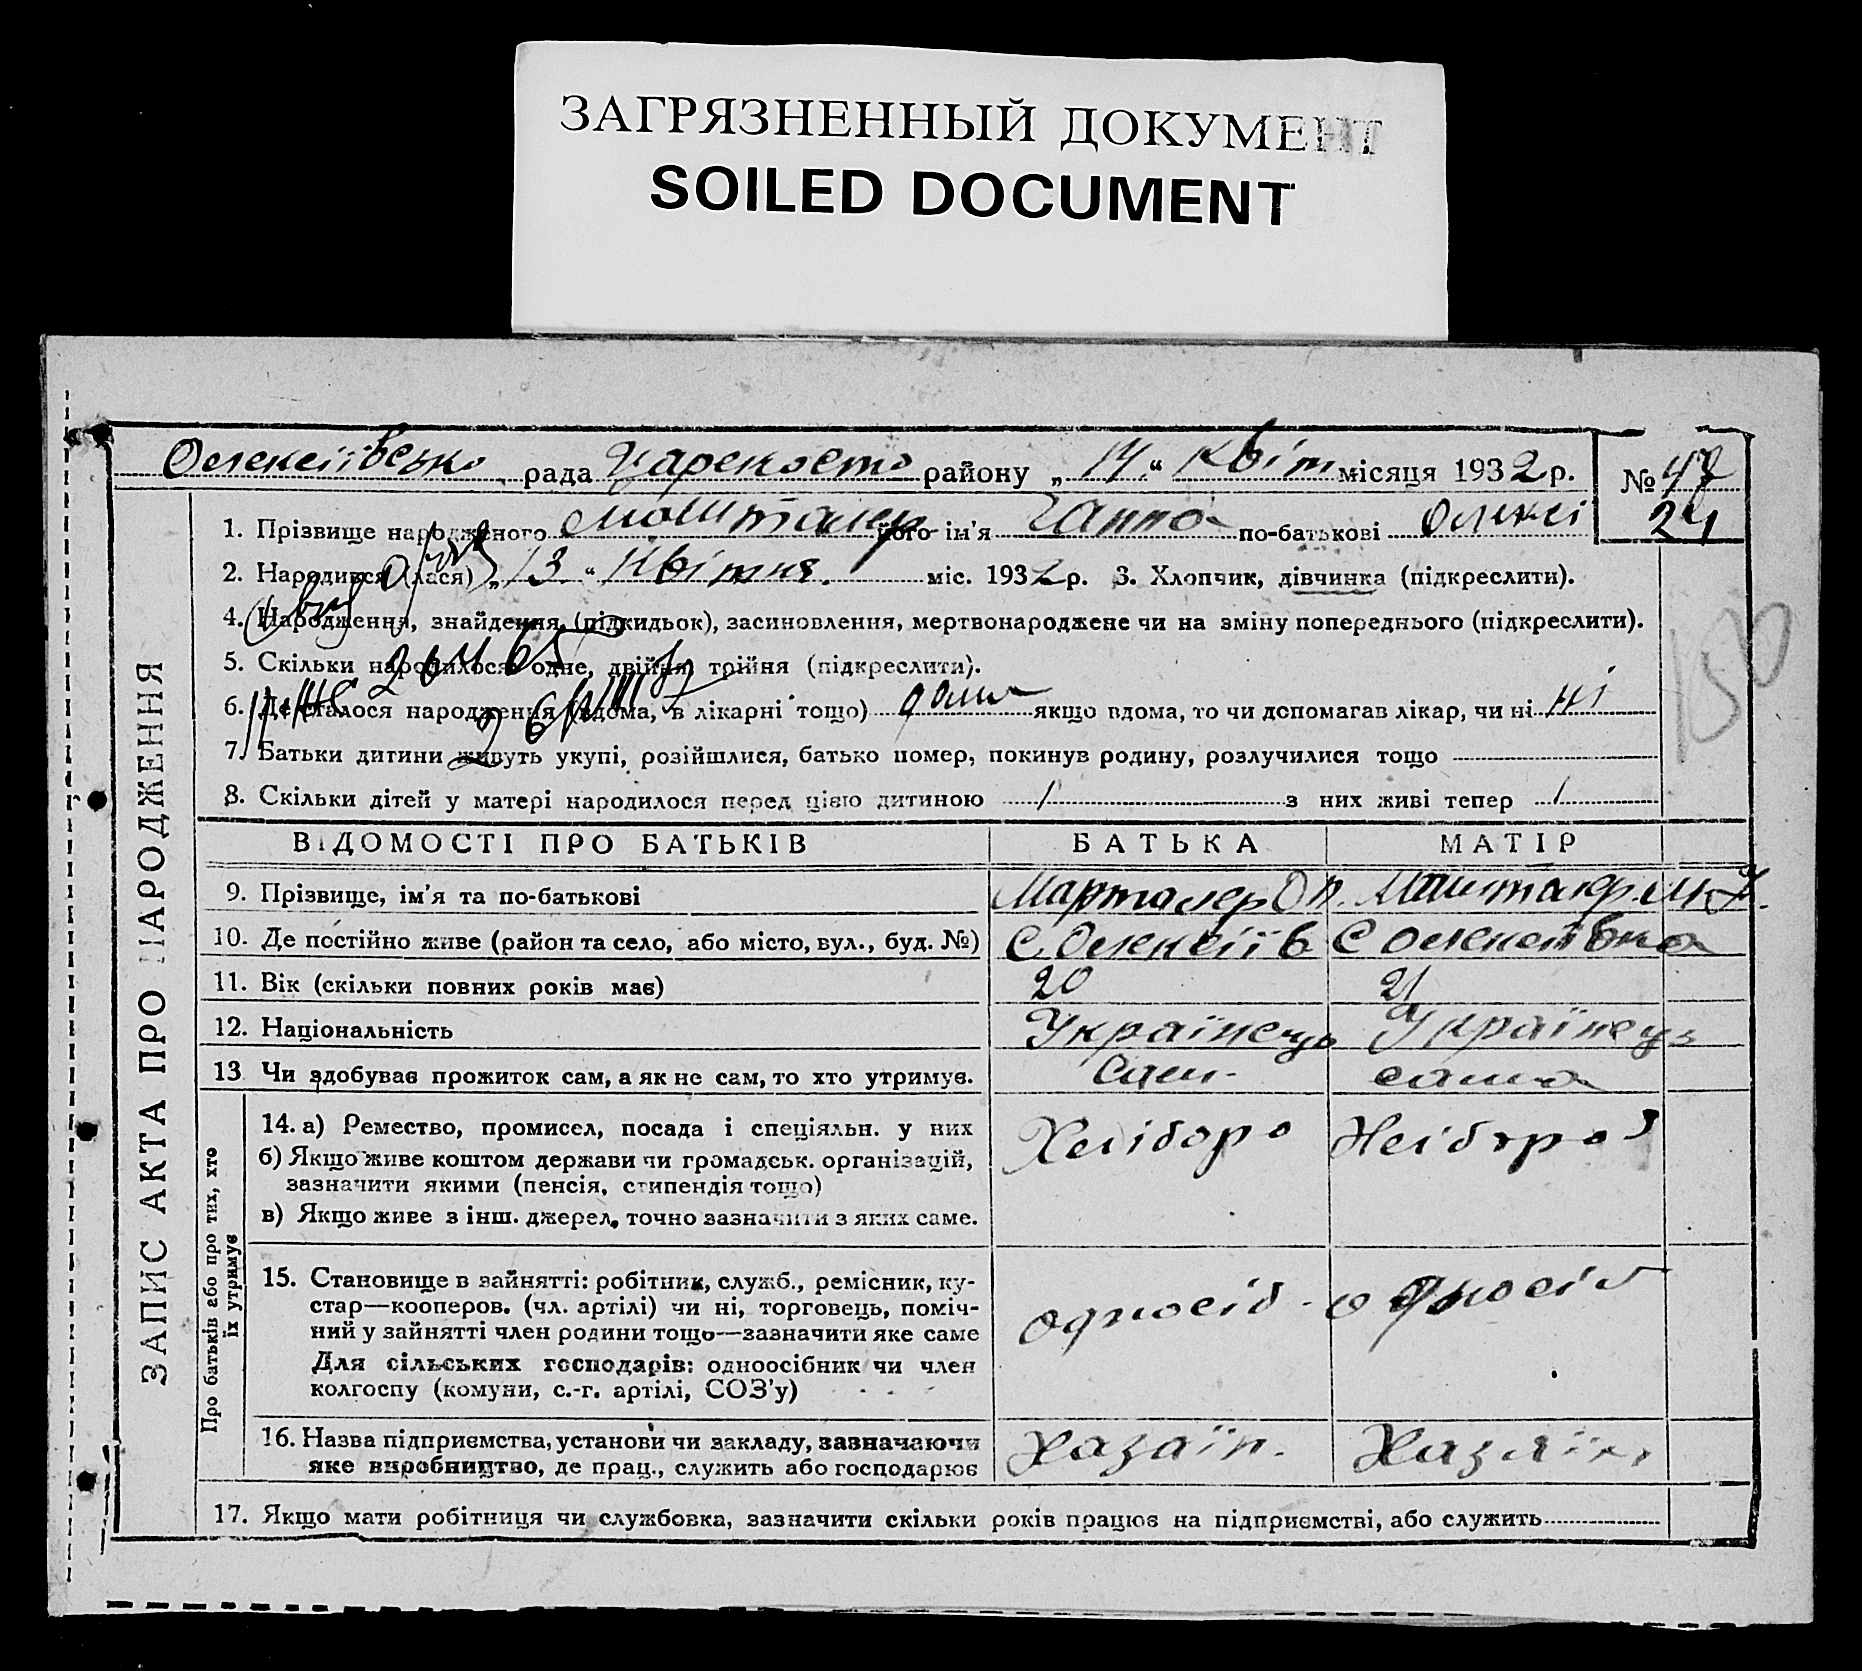 ЗАГРЯЗНЕННЫЙ ДОКУМЕНТ
SOILED DOCUMENT
Олексіївсько рада району „14“ Квітн місяця 1932 р. № 47
24
1. Прізвище народженого Мошталер його ім'я Ганна по-батькові Олексі
2. Народився (лася) „13“ Квітня. міс. 1932 р. 3. Хлопчик, дівчинка (підкреслити).
4. Народження, знайдення (підкидьок), засиновлення, мертвонароджене чи на зміну попереднього (підкреслити).
5. Скільки народилося: одне, двійня, трійня (підкреслити).
6. Де сталося народження (вдома, в лікарні тощо) дома якщо вдома, то чи допомагав лікар, чи ні ні
7. Батьки дитини живуть укупі, розійшлися, батько помер, покинув родину, розлучилися тощо
8. Скільки дітей у матері народилося перед цією дитиною 1 з них живі тепер 1
150
ЗАПИС АКТА ПРО НАРОДЖЕННЯ
ВІДОМОСТІ ПРО БАТЬКІВ БАТЬКА МАТІР
9. Прізвище, ім'я та по-батькові
10. Де постійно живе (район та село, або місто, вул., буд. №) С Олексіїв С Олексіївка
11. Вік (скільки повних років має) 20 21
12. Національність Українець Українець
13 Чи здобуває прожиток сам, а як не сам, то хто утримує. Сам. сама
Про батьків або про тих, хто
їх утримує
14. а) Ремество, промисел, посада і спеціяльн. у них Хлібороб
б) Якщо живе коштом держави чи громадськ. організацій,
зазначити якими (пенсія, стипендія тощо)
в) Якщо живе з інш. джерел, точно зазначити з яких саме.
15. Становище в зайнятті: робітник, служб., ремісник, ку-
стар—кооперов. (чл. артілі) чи ні, торговець, поміч-
ний у зайнятті член родини тощо—зазначити яке саме односіб - односіб
Для сільських господарів: одноосібник чи член
колгоспу (комуни, с.-г. артілі, СОЗ'у)
16. Назва підприємства, установи чи закладу, зазначаючи Хазаїн. Хазяїн
яке виробництво, де прац., служить або господарює
17. Якщо мати робітниця чи службовка, зазначити скільки років працює на підприємстві, або служить